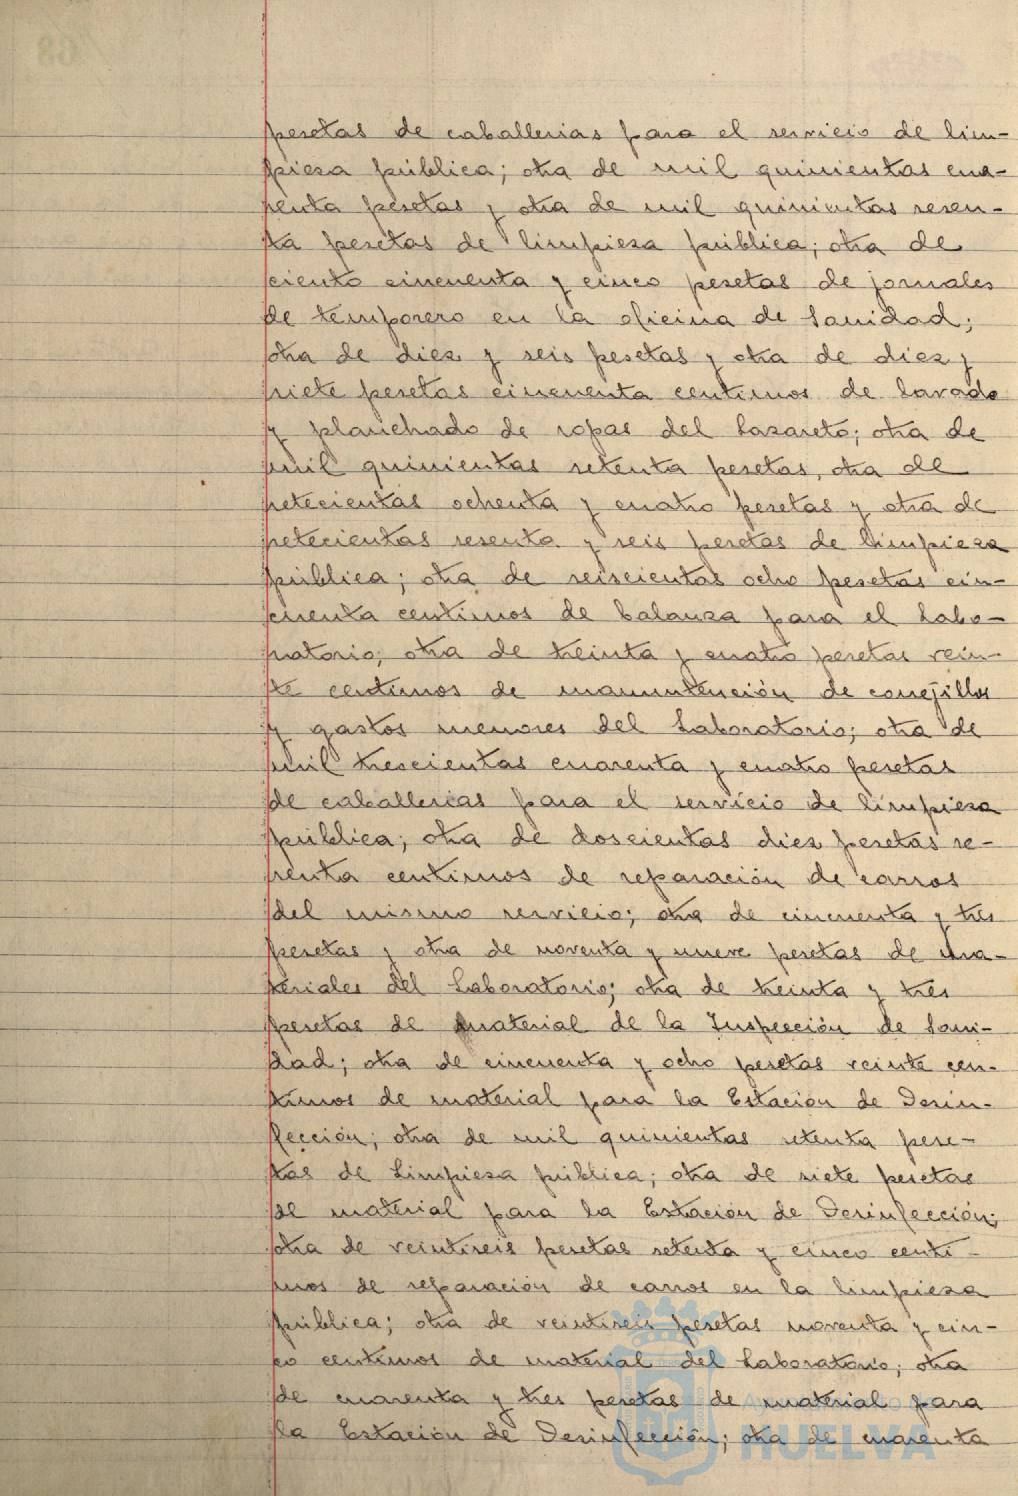 pesetas de caballerias para el servicio de lim-
pieza pública; otra de mil quinientas cua-
renta pesetas y otra de mil quinientas sesen-
ta pesetas de limpieza pública; otra de
ciento cincuenta y cinco pesetas de jornales
de temporero en la oficina de Sanidad;
otra de diez y seis pesetas y otra de diez y
siete pesetas cincuenta centimos de lavado
y planchado de ropas del Lazareto; otra de
mil quinientas setenta pesetas, otra de
setecientas ochenta y cuatro pesetas y otra de
setecientas sesenta y seis pesetas de limpieza
pública; otra de seiscientas ocho pesetas cin-
cuenta centimos de balanza para el Labo-
ratorio; otra de treinta y cuatro pesetas vein-
te centimos de manutención de conejillos
y gastos menores del Laboratorio; otra de
mil trescientas cuarenta y cuatro pesetas
de caballerias para el servicio de limpieza
pública; otra de doscientas diez pesetas se-
senta centimos de reparación de carros
del mismo servicio; otra de cincuenta y tres
pesetas y otra de noventa y nueve pesetas de ma-
teriales del Laboratorio; otra de treinta y tres
pesetas de material de la Inspección de Sani-
dad; otra de cincuenta y ocho pesetas veinte cen-
timos de material para la Estación de Desin-
fección; otra de mil quinientas setenta pese-
tas de Limpieza pública; otra de siete pesetas
de material para la Estación de Desinfección;
otra de veintiseis pesetas setenta y cinco centi-
mos de reparación de carros en la limpieza
pública; otra de veintiseis pesetas noventa y cin-
co centimos de material del Laboratorio; otra
de cuarenta y tres pesetas de material para
la Estación de Desinfección; otra de cuarenta
HUELVA